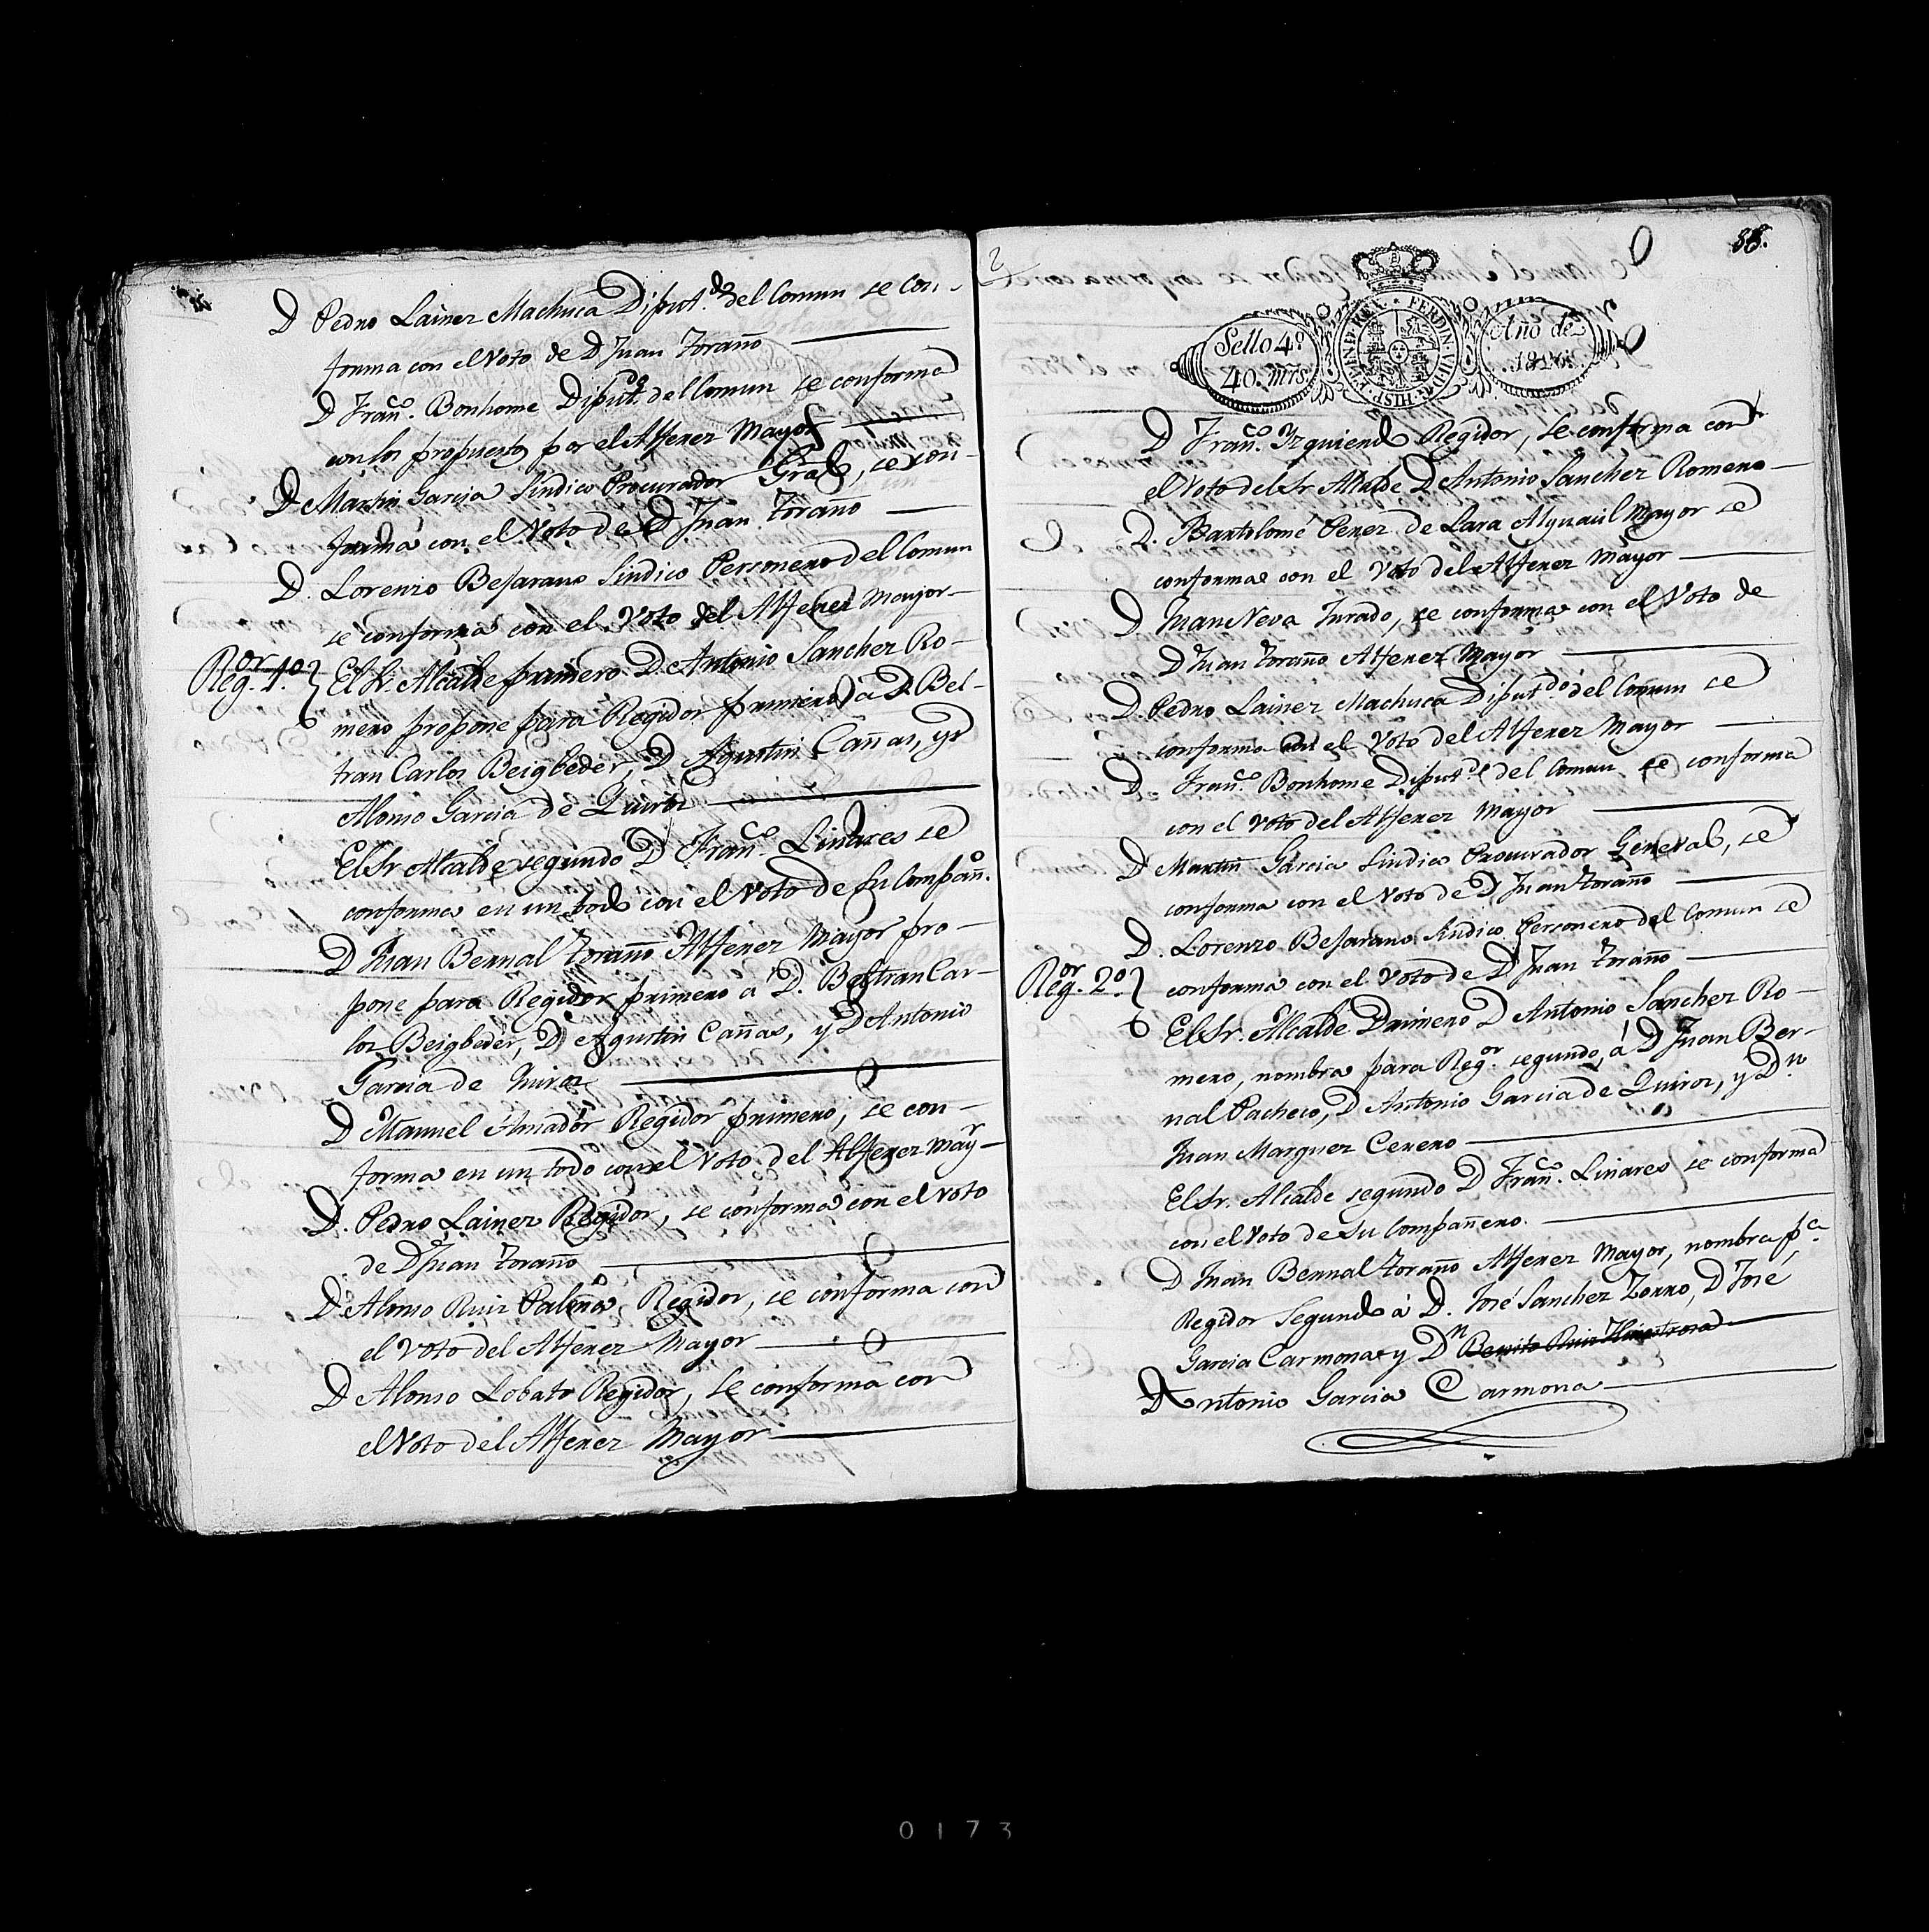 D Pedro Lainez Machuca Diput.do del Comun se con-
forma con el Voto de D Juan Toraño
D Fran.co Bonhome Diput.do del Comun se conforma
con los propuestos por el Alferez Mayor
D Martin Garcia Sindico Procurador Gral, se con-
forma con el Voto de D Juan Toraño
D. Lorenzo Bejarano Sindico Personero del Comun
se conforma con el Voto del Alferez Mayor
Reg.or 1.o
El Sr. Alcalde primero D. Antonio Sanchez Ro-
mero propone para Regidor primero a D Bel-
tran Carlos Beigbeder, D Agustin Cañas, y D
Alonso Garcia de Quiros
El Sr Alcalde segundo D Fran.co Linares se
conforma en un todo con el Voto de su Compañ.o
D Juan Bernal Toraño Alferez Mayor pro-
pone para Regidor primero a D. Beltran Car-
los Beigbeder, D Agustin Cañas, y D Antonio
Garcia de Quiros
D Manuel Amador Regidor primero, se con-
forma en un todo con el Voto del Alferez May.r
D. Pedro Lainez Regidor, se conforma con el voto
de D Juan Toraño
D Alonso Ruiz Regidor, se conforma con
el voto del Alferez Mayor
D Alonso Lobato Regidor, se conforma con
el Voto del Alferez Mayor
Sello 4.o
40. mrs
HISP. ET IND. REX. FERDIN. VII. D. G.
Año de
1816.
D Fran.co Izquierdo Regidor, se conforma con
el Voto del Sr Alcalde D Antonio Sanchez Romero
D. Bartolomé Perez de Lara Alguacil Mayor se
conforma con el Voto del Alferez Mayor
D Juan Neva Jurado, se conforma con el Voto de
D Juan Toraño Alferez Mayor
D. Pedro Lainez Machuca Diput.do del Comun se
conforma con el Voto del Alferez Mayor
D. Fran.co Bonhome Diput.do del Comun se conforma
con el voto del Alferez Mayor
D Martin Garcia Sindico Procurador General, se
conforma con el Voto de D Juan Toraño
D. Lorenzo Bejarano Sindico Personero del Comun se
conforma con el Voto de D Juan Toraño
Reg.or 2.o
El Sr. Alcalde Primero D Antonio Sanchez Ro-
mero, nombra para Reg.or segundo, á D Juan Ber-
nal Pacheco, D Antonio Garcia de Quiros, y D.n
Juan Marquez Cerero
El Sr. Alcalde segundo D Fran.co Linares se conforma
con el Voto de su Compañero.
D Juan Bernal Toraño Alferez Mayor, nombra p.a
Regidor Segundo á D. José Sanchez Zorro, D José
Garcia Carmona y D.n Benito Ruiz Hinestrosa
D Antonio Garcia Carmona
0173